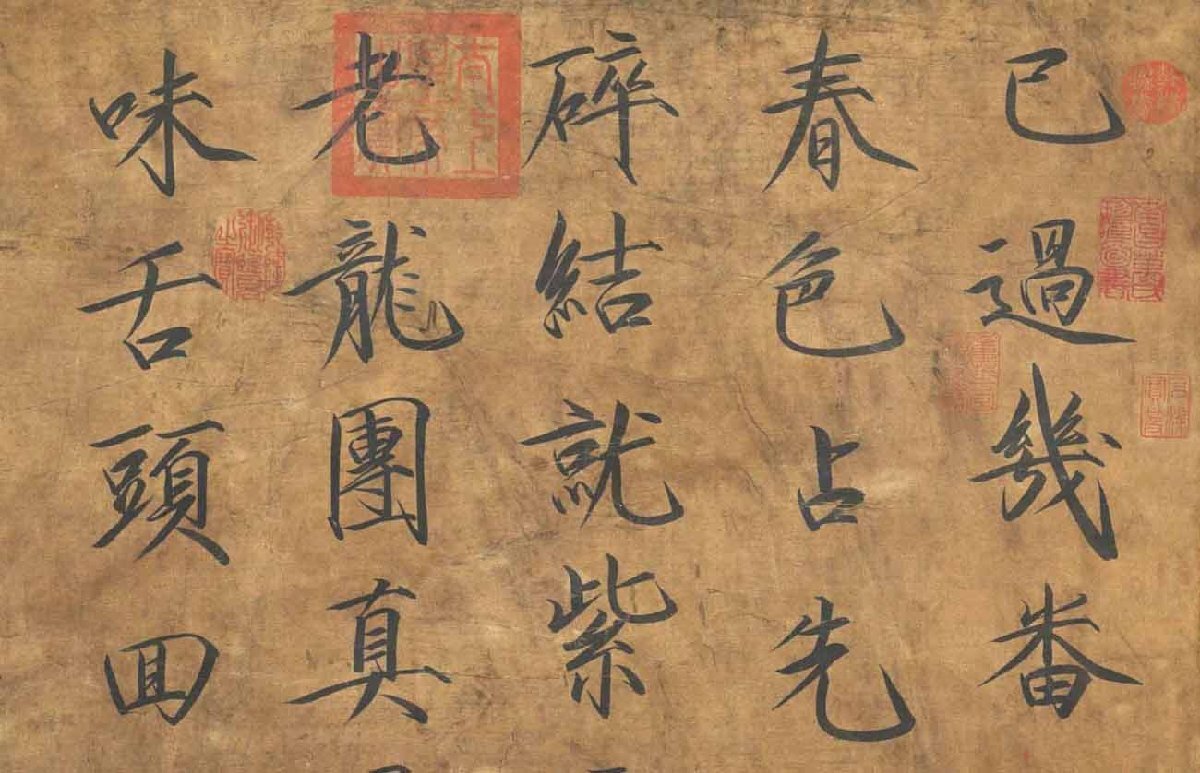 已過幾番
春色占先
碎結就紫
老龍團真
味舌頭回